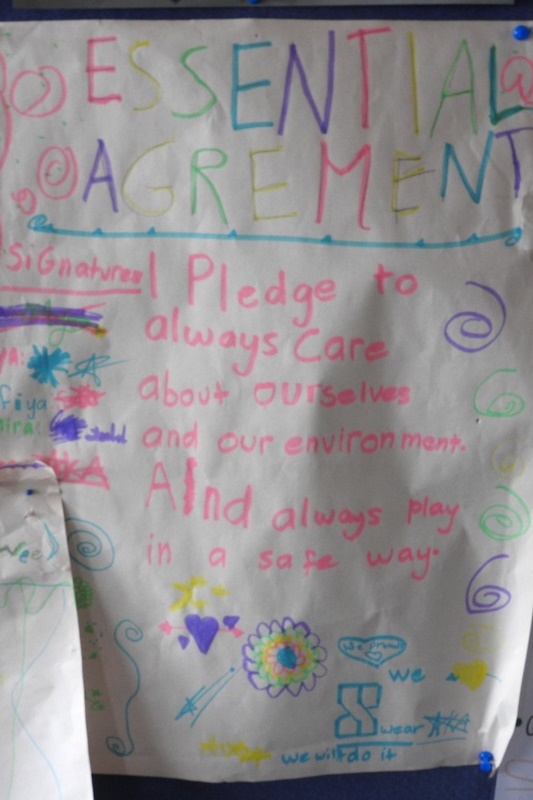 ESSENTIAL
AGREMENT
Signatures
I Pledge to
always Care
about ourselves
and our environment.
AInd always play
in a safe way.
we
Swear
we will do it